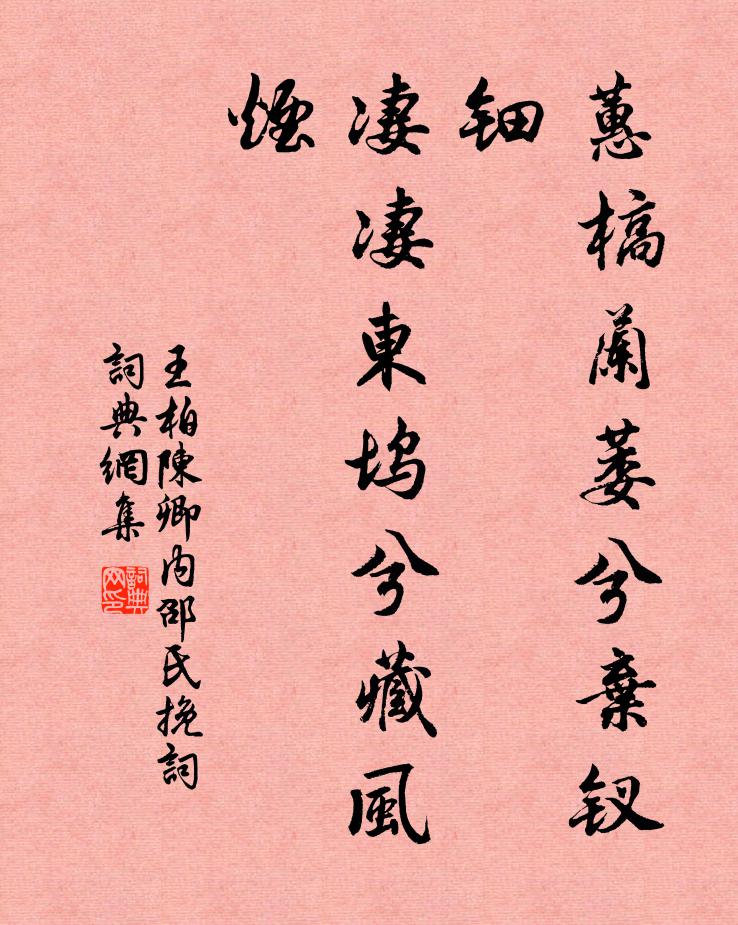 蕙槁蘭萎兮棄钗
钿
凄凄東塢兮藏風
煙
王柏陳卿内邵氏挽詞
詞典網集
詞典网印